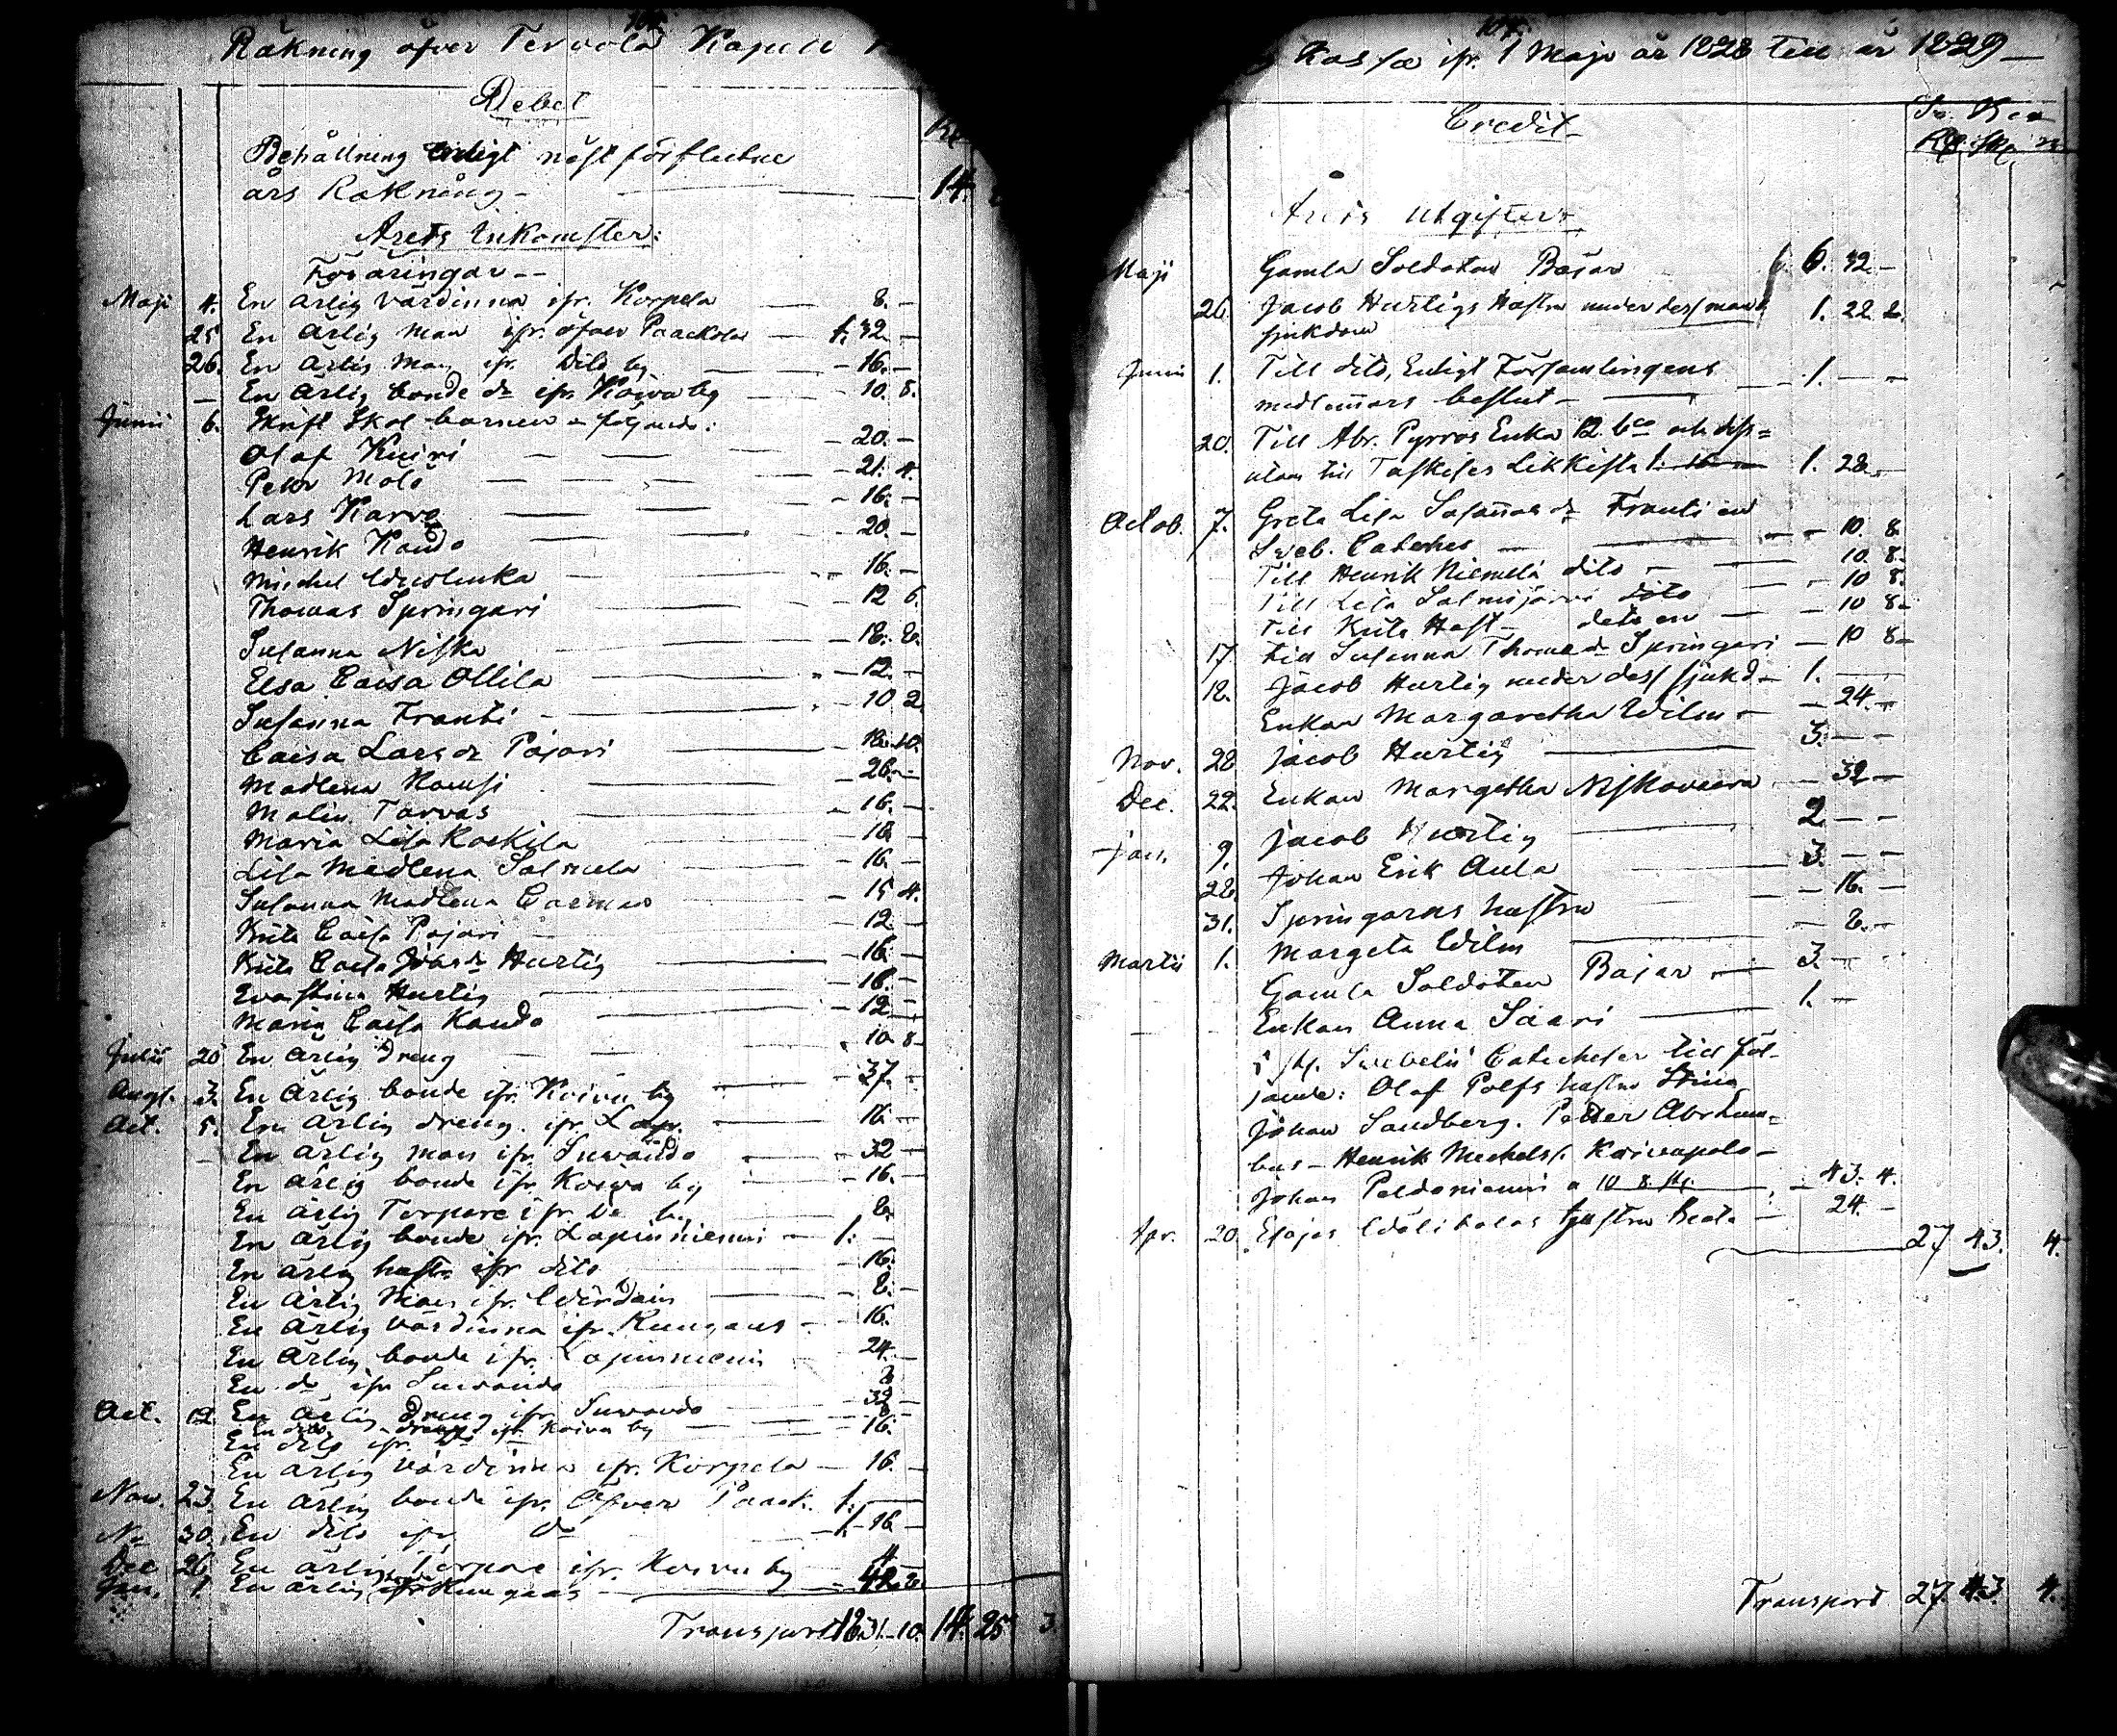 Räkning öfver Tervola Kapell
Debet
Behållning enligt näst förflutne
års Räkning — 14.
Årets Inkomster:
Föräringar --
Maji 4. En ärlig värdinna ifr. Korpela — 8. -
25 En ärlig man ifr. öfver Paackola — 1. 32 -
26. En ärlig man ifr. dito by — 16. -
— En ärlig bonde dr ifr. Koivu by — 10. 8.
Junii 6. Skrift Skol barnen följande:
Olof Kuiri — 20. -
Petr Molö — 21. 4.
Lars Karvo — 16. -
Henrik Kando — 20. -
Michel — 16. -
Thomas Springari — 12 6.
Susanna Niska — 18. 8.
Elsa Caisa Ollila — 12. -
Susanna Franti — 10 2.
Caisa Lars dr Pajari — 10.
Madlena Komsi — 26. -
Malin Tarvas — 16. -
Maria Lisa Koskila — 18. -
Lisa Madlena Salmela — 16. -
Susanna Madlena — 15 4.
Brita Caisa Pajari — 12. -
Brita Caisa dr Hurtig — 16. -
Eva Stina Hurtig — 16. -
Maria Caisa Kando — 12. -
Julii 20 En ärlig dreng — 10. 8.
Augt. 3. En ärlig bonde ifr. Koivu by — 37. -
Oct. 5. En ärlig dreng ifr. Lap. — 16. -
En ärlig man ifr. Suvando — 32 -
En ärlig bonde ifr. Koivu by — 16. -
En ärlig Torpare ifr. by — 8.
En ärlig bonde ifr. Lapinniemi — 1. -
En ärlig hustr. ifr dito — 16. -
En ärlig man ifr. — 8. -
En ärlig värdinna ifr. Kungaus — 16.
En ärlig bonde ifr. Lapinniemi — 24. -
En do ifr Suvando — 8
Oct. 12. En ärlig dreng ifr. Suvando — 32 -
En dito dreng ifr. Koivu by
En dito ifr. — 16.
En ärlig värdinna ifr. Korpela — 16. -
Nov. 23. En ärlig bonde ifr. Öfver Paack. 1. —
30. En dito ifr do — 1. 16 -
Dec 26 En ärlig Torpare ifr. Koivu by — 4
Jan. 1. En ärlig ifr Kungaas —
Transport 18. 31. 10. 14. 25 3.
Kassa ifr. 1 Maji år 1828 till år 1829 —
Credit
Årets Utgifter
Maji Gamla Soldaten Bajar 6. 32. -
26. Jacob Hurtigs Hustru under dess mans 1. 22 2.
sjukdom
Junii 1. Till dito, Enligt Församlingens — 1. — -
medlemmars beslut —
20. Till Abr. Pyrros Enka 12 bco och dess=
utom till Likkista 1. 28. -
Octob. 7. Greta Lisa dr Franti en
Sveb. Cateches — 10. 8.
Till Henrik Niemelä dito — 10. 8.
Till Lisa Salmijärvi dito — 10 8.
Till Brita Hast dito en — 10 8.
17. till Susanna Thoma dr Springari — 10 8
18. Jacob Hurtig under dess sjukd. — 1. —
Enkan Margaretha — 24. -
Nov. 28 Jacob Hurtig — 3. — -
Dec. 22. Enkan Margetha Niskavaara — 32 -
Jan. 9. Jacob Hurtig — 2. — -
28. Johan Erik Aula — 3. — -
31. Springares hustru — 16. -
Martii 1. Margeta — 8. -
Gamla Soldaten Bajar — 3. —
Enkan Anna Saari — 1. -
5 st. Svebelii Catecheser till föl-
jande: Olof Polfs hustru Stina
Johan Sandberg. Petter Abr
bus — Henrik Michels s. Koivupalo —
Johan Peldoniemi a 10 8 st. — 43. 4.
Apr. 20. Esajas hustru Beata — 24. -
27 43. 4.
Transport 27. 43. 4.